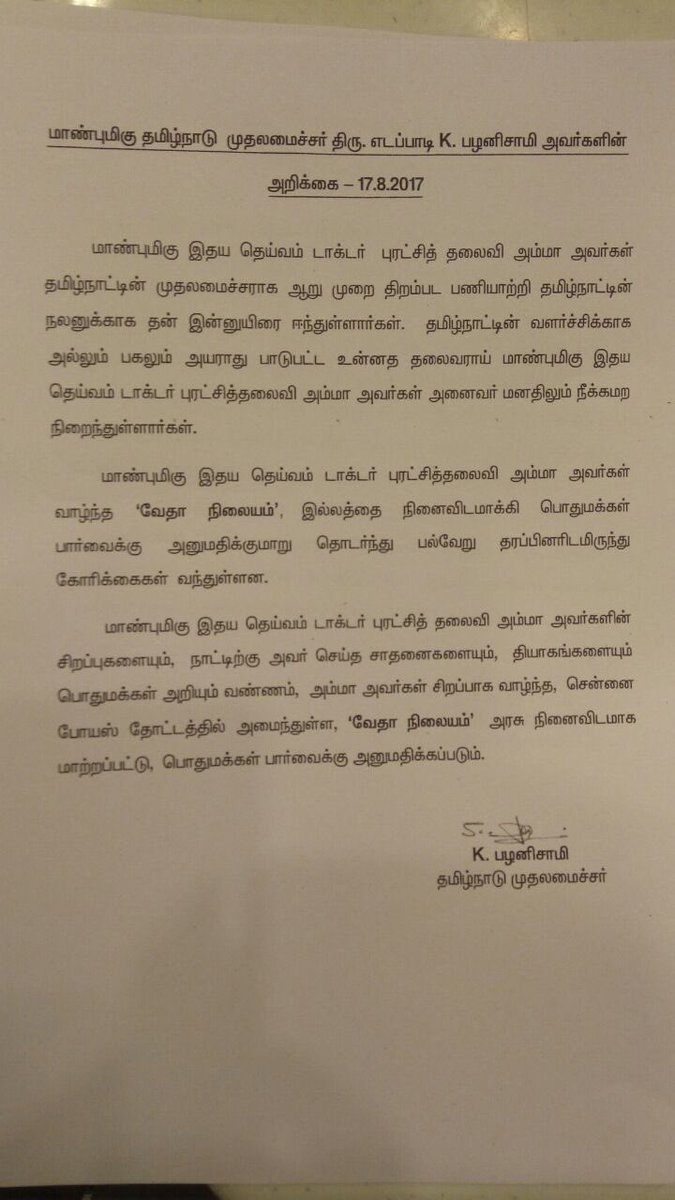 மாண்புமிகு தமிழ்நாடு முதலமைச்சர் திரு. எடப்பாடி K. பழனிசாமி அவர்களின்
அறிக்கை – 17.8.2017
மாண்புமிகு இதய தெய்வம் டாக்டர் புரட்சித் தலைவி அம்மா அவர்கள்
தமிழ்நாட்டின் முதலமைச்சராக ஆறு முறை திறம்பட பணியாற்றி தமிழ்நாட்டின்
நலனுக்காக தன் இன்னுயிரை ஈந்துள்ளார்கள். தமிழ்நாட்டின் வளர்ச்சிக்காக
அல்லும் பகலும் அயராது பாடுபட்ட உன்னத தலைவராய் மாண்புமிகு இதய
தெய்வம் டாக்டர் புரட்சித்தலைவி அம்மா அவர்கள் அனைவர் மனதிலும் நீக்கமற
நிறைந்துள்ளார்கள்.
மாண்புமிகு இதய தெய்வம் டாக்டர் புரட்சித்தலைவி அம்மா அவர்கள்
வாழ்ந்த ‘வேதா நிலையம்’, இல்லத்தை நினைவிடமாக்கி பொதுமக்கள்
பார்வைக்கு அனுமதிக்குமாறு தொடர்ந்து பல்வேறு தரப்பினரிடமிருந்து
கோரிக்கைகள் வந்துள்ளன.
மாண்புமிகு இதய தெய்வம் டாக்டர் புரட்சித் தலைவி அம்மா அவர்களின்
சிறப்புகளையும், நாட்டிற்கு அவர் செய்த சாதனைகளையும், தியாகங்களையும்
பொதுமக்கள் அறியும் வண்ணம், அம்மா அவர்கள் சிறப்பாக வாழ்ந்த, சென்னை
போயஸ் தோட்டத்தில் அமைந்துள்ள, ‘வேதா நிலையம்’ அரசு நினைவிடமாக
மாற்றப்பட்டு, பொதுமக்கள் பார்வைக்கு அனுமதிக்கப்படும்.
K. பழனிசாமி
தமிழ்நாடு முதலமைச்சர்